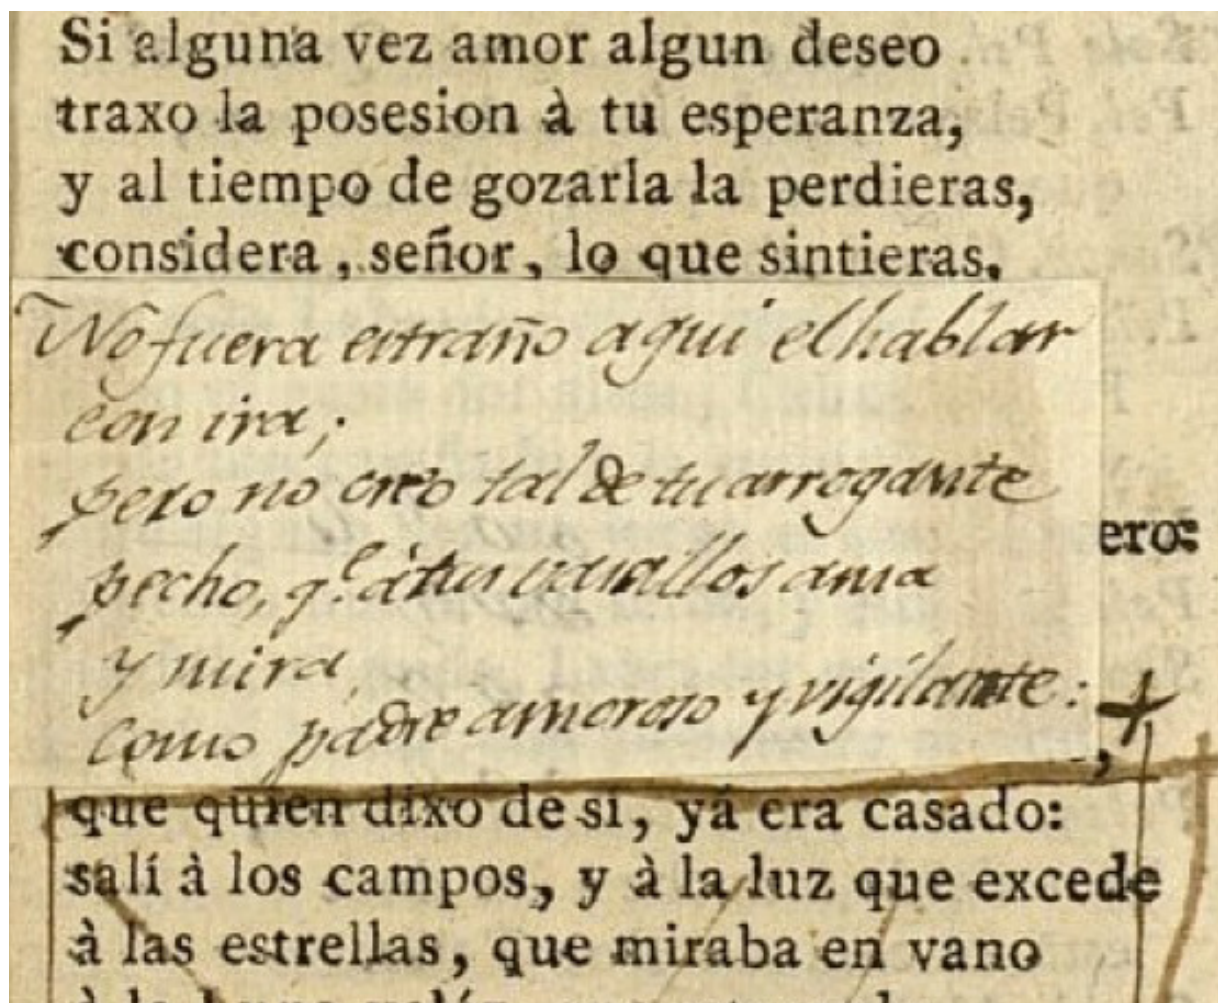 Si alguna vez amor algun deseo
traxo la posesion à tu esperanza,
y al tiempo de gozarla la perdieras,
considera, señor, lo que sintieras.
No fuera extraño aqui el hablar
con ira;
pero no creo tal de tu arrogante
pecho, q.e à tus vasallos ama
ero:
y mira
como padre amoroso y vigilante: +
que quien dixo de sí, yá era casado:
salí à los campos, y à la luz que excede
à las estrellas, que miraba en vano